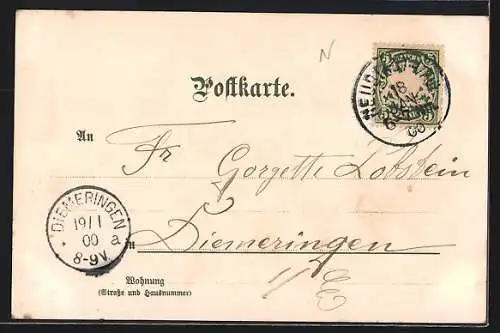 N
Postkarte.
BAYERN
NEU
18
JAN
00
An
Fr Gorgette Lobstein
DIEMERINGEN
19/1
00 a
8-9V.
in Diemeringen
i/E
Wohnung
(Straße und Hausnummer)